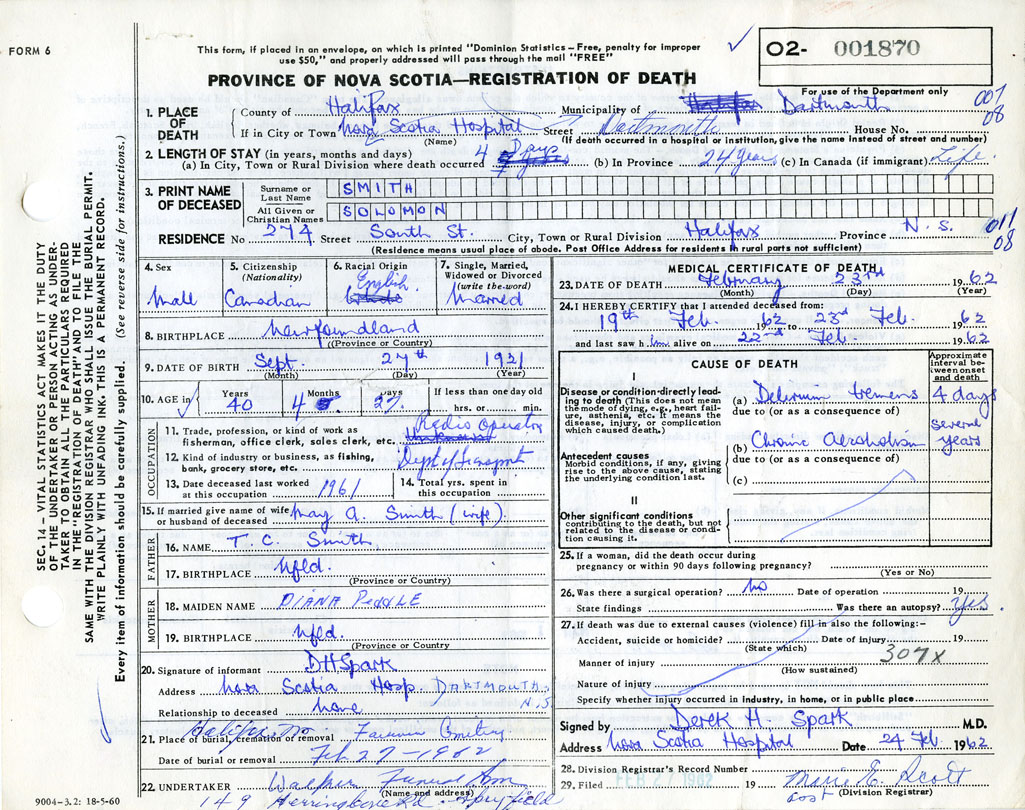 FORM 6
This form, if placed in an envelope, on which is printed "Dominion Statistics—Free, penalty for improper
use $50," and properly addressed will pass through the mail "FREE"
PROVINCE OF NOVA SCOTIA—REGISTRATION OF DEATH
02- 001870
For use of the Department only
001
08
1. PLACE OF DEATH
County of Halifax Municipality of Halifax Dartmouth
If in City or Town Nova Scotia Hospital Street Dartmouth House No.
(Name) (If death occurred in a hospital or institution, give the name instead of street and number)
2. LENGTH OF STAY (in years, months and days)
(a) In City, Town or Rural Division where death occurred 4 Days (b) In Province 24 Years (c) In Canada (if immigrant) Life
3. PRINT NAME OF DECEASED
Surname or Last Name SMITH
All Given or Christian Names SOLOMON
RESIDENCE No 274 Street South St. City, Town or Rural Division Halifax Province N.S.
011
08
(Residence means usual place of abode. Post Office Address for residents in rural parts not sufficient)
4. Sex
Male
5. Citizenship
(Nationality)
Canadian
6. Racial Origin
English
7. Single, Married,
Widowed or Divorced
(write the word)
Married
8. BIRTHPLACE Newfoundland
(Province or Country)
9. DATE OF BIRTH Sept. 27th 1921
(Month) (Day) (Year)
10. AGE in
Years Months Days If less than one day old
40 4 27 hrs. or min.
OCCUPATION
11. Trade, profession, or kind of work as
fisherman, office clerk, sales clerk, etc. Radio Operator
12. Kind of industry or business, as fishing,
bank, grocery store, etc. Dept of Transport
13. Date deceased last worked
at this occupation 1961
14. Total yrs. spent in
this occupation
15. If married give name of wife
or husband of deceased May A. Smith (wife)
FATHER
16. NAME T. C. Smith
17. BIRTHPLACE Nfld.
(Province or Country)
MOTHER
18. MAIDEN NAME DIANA PEDDLE
19. BIRTHPLACE Nfld.
(Province or Country)
20. Signature of informant DHSpark
Address Nova Scotia Hosp. DARTMOUTH, N.S.
Relationship to deceased None
21. Place of burial, cremation or removal Halifax Fairview Cemetery
Date of burial or removal Feb 27-1962
22. UNDERTAKER Walker Funeral Hom
(Name and address)
149 Herring Cove Rd. Spryfield
9004-3.2: 18-5-60
MEDICAL CERTIFICATE OF DEATH
23. DATE OF DEATH February 23rd 1962
(Month) (Day) (Year)
24. I HEREBY CERTIFY that I attended deceased from:
19th Feb. 1962 to 23rd Feb. 1962
and last saw him alive on 22nd Feb. 1962
CAUSE OF DEATH
Approximate
interval between
onset
and death
I
Disease or condition directly lead-
ing to death (This does not mean
the mode of dying, e.g., heart failure, asthenia, etc. It means the
disease, injury, or complication
which caused death.)
(a) Delirium tremens 4 days
due to (or as a consequence of)
(b) Chronic Alcoholism several years
due to (or as a consequence of)
(c)
Antecedent causes
Morbid conditions, if any, giving
rise to the above cause, stating
the underlying condition last.
II
Other significant conditions
contributing to the death, but not
related to the disease or condi-
tion causing it.
25. If a woman, did the death occur during
pregnancy or within 90 days following pregnancy?
(Yes or No)
26. Was there a surgical operation? No Date of operation 19
State findings Was there an autopsy? Yes.
27. If death was due to external causes (violence) fill in also the following:—
Accident, suicide or homicide? Date of injury 19
(State which)
307x
Manner of injury
(How sustained)
Nature of injury
Specify whether injury occurred in industry, in home, or in public place
Signed by Derek H. Spark M.D.
Address Nova Scotia Hospital Date 24 Feb. 1962
28. Division Registrar's Record Number
29. Filed FEB 27 1962 Marie E. Scott
(Division Registrar)
SEC. 14 – VITAL STATISTICS ACT MAKES IT THE DUTY
OF THE UNDERTAKER OR PERSON ACTING AS UNDER-
TAKER TO OBTAIN ALL THE PARTICULARS REQUIRED
IN THE "REGISTRATION OF DEATH" AND TO FILE THE
SAME WITH THE DIVISION REGISTRAR WHO SHALL ISSUE THE BURIAL PERMIT.
WRITE PLAINLY WITH UNFADING INK. THIS IS A PERMANENT RECORD.
Every item of information should be carefully supplied. (See reverse side for instructions.)